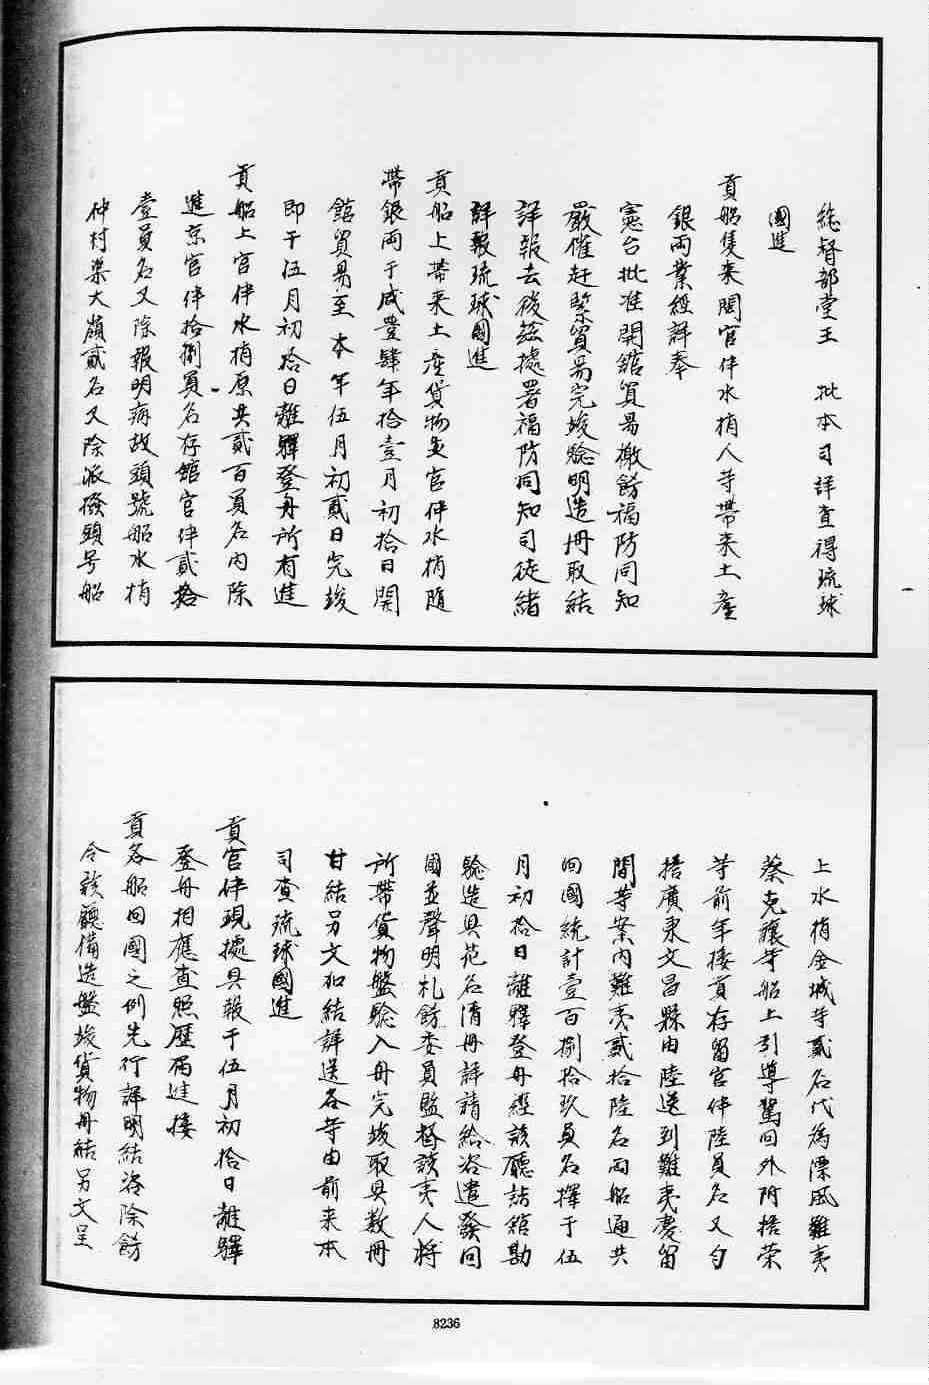 總督部堂王 批本司詳查得琉球
國進
貢船隻來閩官伴水梢人等帶來土產
銀兩業經詳奉
憲台批准開館貿易檄飭福防同知
嚴催赶緊貿易完竣驗明造冊取結
詳報去後茲據署福防同知司徒緒
詳報琉球國進
貢船上帶來土產貨物並官伴水梢隨
帶銀兩于咸豐肆年拾壹月初拾日開
館貿易至本年伍月初貳日完竣
即于伍月初拾日離驛登舟所有進
貢船上官伴水梢原共貳百員名內除
進京官伴拾捌員名存館官伴貳拾
壹員名又除報明病故頭號船水梢
仲村渠大嶺貳名又除派撥頭号船
上水梢金城等貳名代為漂風難夷
蔡克讓等船上引導駕回外附搭榮
等前年接貢存留官伴陸員名又勻
搭廣東文昌縣由陸送到難夷慶留
間等案內難夷貳拾陸名兩船通共
回國統計壹百捌拾玖員名擇于伍
月初拾日離驛登舟經該廳詣館勘
驗造具花名清冊詳請給咨遣發回
國並聲明札飭委員監督該夷人將
所帶貨物盤驗入舟完竣取具数冊
甘結另文加結詳送各等由前來本
司查琉球國進
貢官伴現據具報于伍月初拾日離驛
登舟相應查照歷屆進接
貢各船回國之例先行詳明結咨除飭
令該廳備造盤竣貨物冊結另文呈
8236